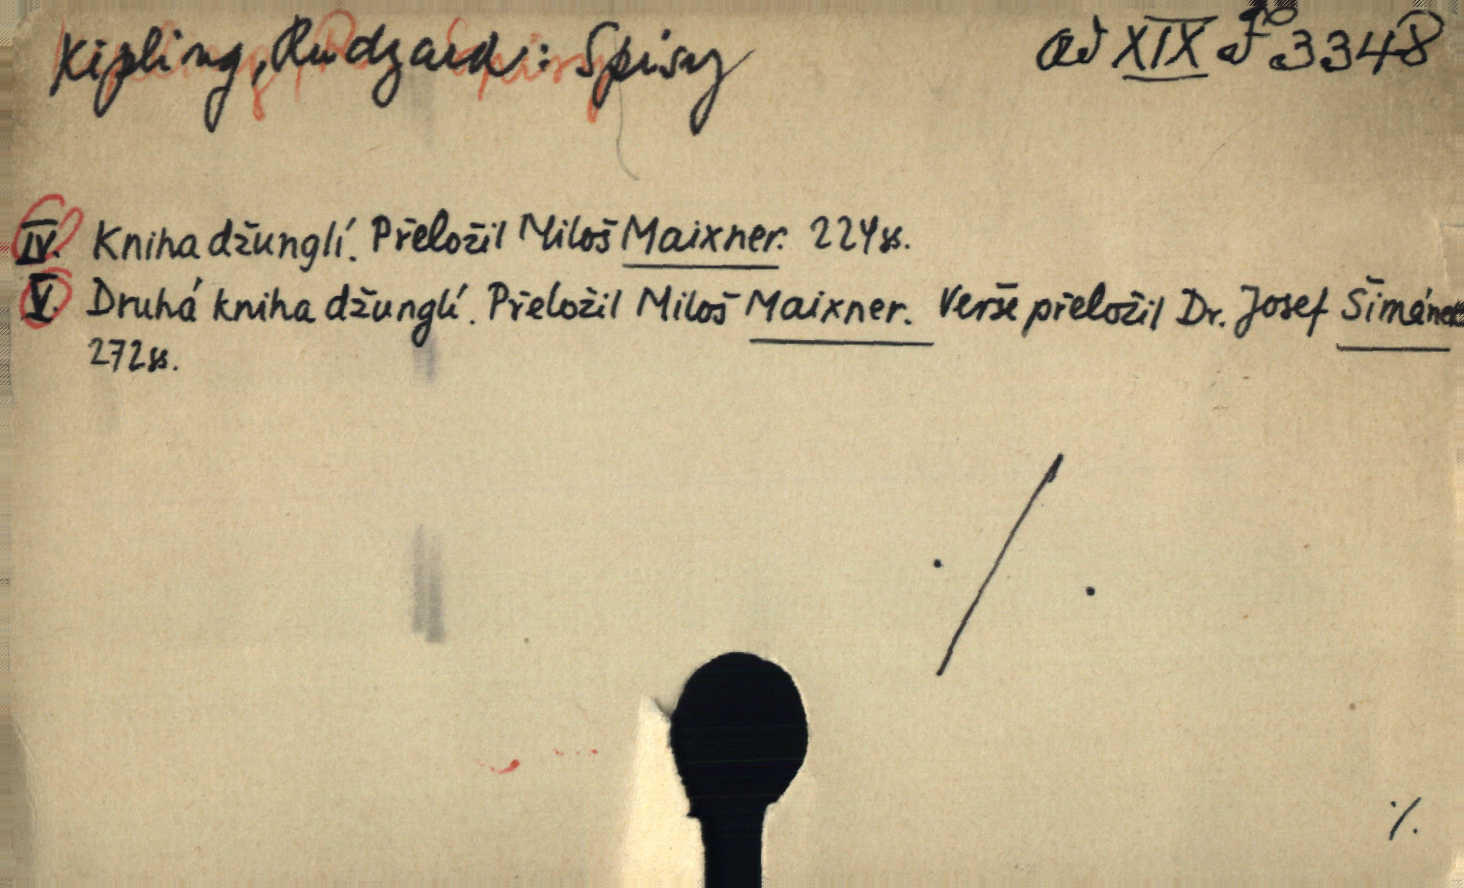 Kipling, Rudyard: Spisy
ad XIX F 3348
IV. Kniha džunglí. Přeložil Miloš Maixner. 224 ss.
V. Druhá kniha džunglí. Přeložil Miloš Maixner. Verše přeložil Dr. Josef Šimánek
272 ss.
./.
./.